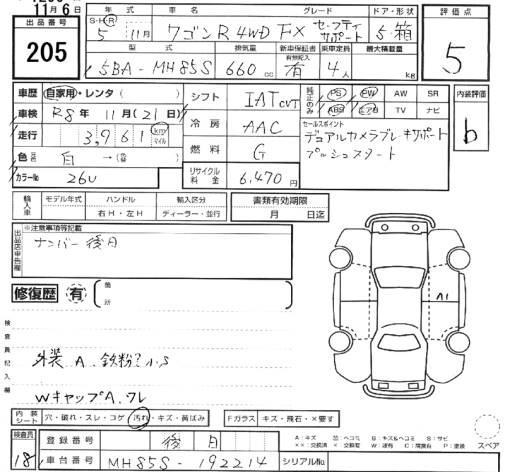 11月6日
出品番号
205
年式 車名 グレード ドア・形状
S・H・R 5年 11月 ワゴンR 4WD FX セーフティサポート 5・箱
型式 排気量 新車保証書 有無記入 乗車定員 最大積載量
5BA-MH85S 660cc 有 4人 kg
評価点
5
車歴 自家用・レンタ( )
車検 R8年11月(21)日
走行 3,961 km マイル
色 白→(色替)
カラーNo 26U
シフト IAT CVT
冷房 AAC
燃料 G
リサイクル料金 6,470円
純正のみ PS PW AW SR
ABS エアB TV ナビ
内装評価
b
セールスポイント
デュアルカメラブレーキサポート
プッシュスタート
輸入車 モデル年式 ハンドル 輸入区分
右H・左H ディーラー・並行
書類有効期限
月 日迄
出品店申告欄 ※注意事項等記載
ナンバー後日
修復歴 有 (箇所)
検査員記入欄
外装A、鉄粉?小S
WキャップA、ワレ
A1
内装シート 穴・破れ・スレ・コゲ・汚れ・キズ・黄ばみ
Fガラス キズ・飛石・×要す
検査員
18
登録番号 後日
車台番号 MH85S-192214 シリアルNo.